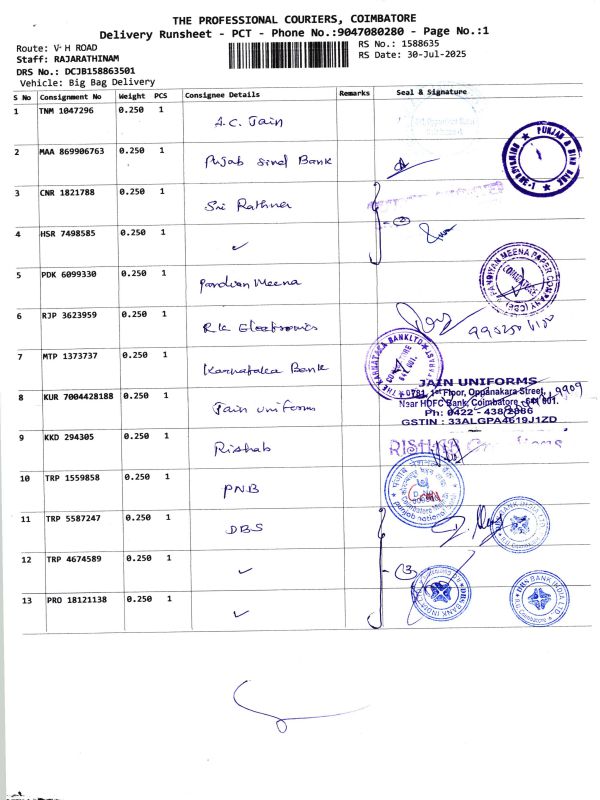 THE PROFESSIONAL COURIERS, COIMBATORE
Delivery Runsheet - PCT - Phone No.:9047080280 - Page No.:1
Route: V H ROAD
RS No.: 1588635
Staff: RAJARATHINAM
RS Date: 30-Jul-2025
DRS No.: DCJB158863501
Vehicle: Big Bag Delivery
S No Consignment No Weight PCS Consignee Details Remarks Seal & Signature
1 TNM 1047296 0.250 1 A.C. Jain
2 MAA 869906763 0.250 1 Punjab Sind Bank
PUNJAB & SIND BANK
3 CNR 1821788 0.250 1 Sri Rathna
4 HSR 7498585 0.250 1 ✓
2
5 PDK 6099330 0.250 1 Pandiyan Meena
PANDIYAN MEENA PAPER COMPANY (CBE)
COIMBATORE
6 RJP 3623959 0.250 1 R.K Electronics
7 MTP 1373737 0.250 1 Karnataka Bank
THE KARNATAKA BANK LTD
8 KUR 7004428188 1 0.250 1 Jain uniforms
JAIN UNIFORMS
0781, 1st Floor, Oppanakara Street,
Near HDFC Bank, Coimbatore - 641 001.
Ph: 0422 - 4387866
GSTIN : 33ALGPA4619J1ZD
9 KKD 294305 0.250 1 Rishab
RISHAB
10 TRP 1559858 0.250 1 PNB
punjab national bank
11 TRP 5587247 0.250 1 DBS
DBS BANK INDIA LTD
12 TRP 4674589 0.250 1 ✓
3
13 PRO 18121138 0.250 1 ✓
DBS BANK INDIA LTD
DBS BANK INDIA LTD